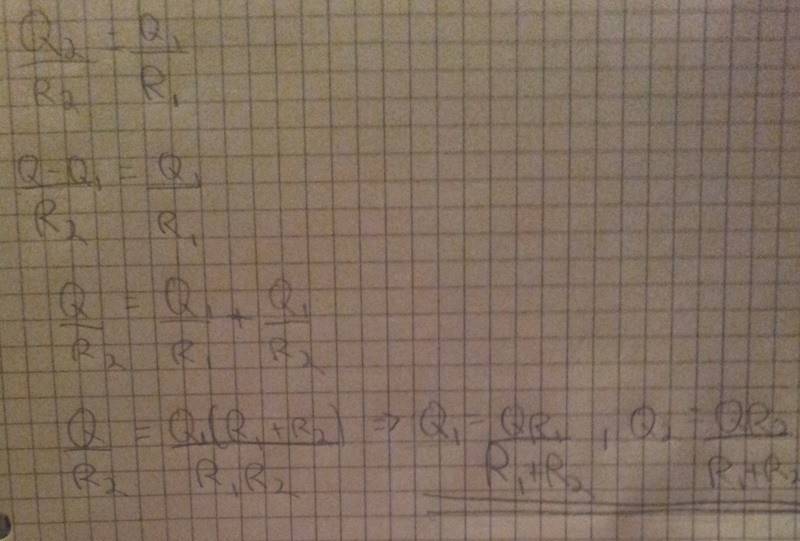 Q₂/R₂ = Q₁/R₁
(Q-Q₁)/R₂ = Q₁/R₁
Q/R₂ = Q₁/R₁ + Q₁/R₂
Q/R₂ = Q₁(R₁+R₂)/(R₁R₂) ⇒ Q₁ = QR₁/(R₁+R₂), Q₂ = QR₂/(R₁+R₂)